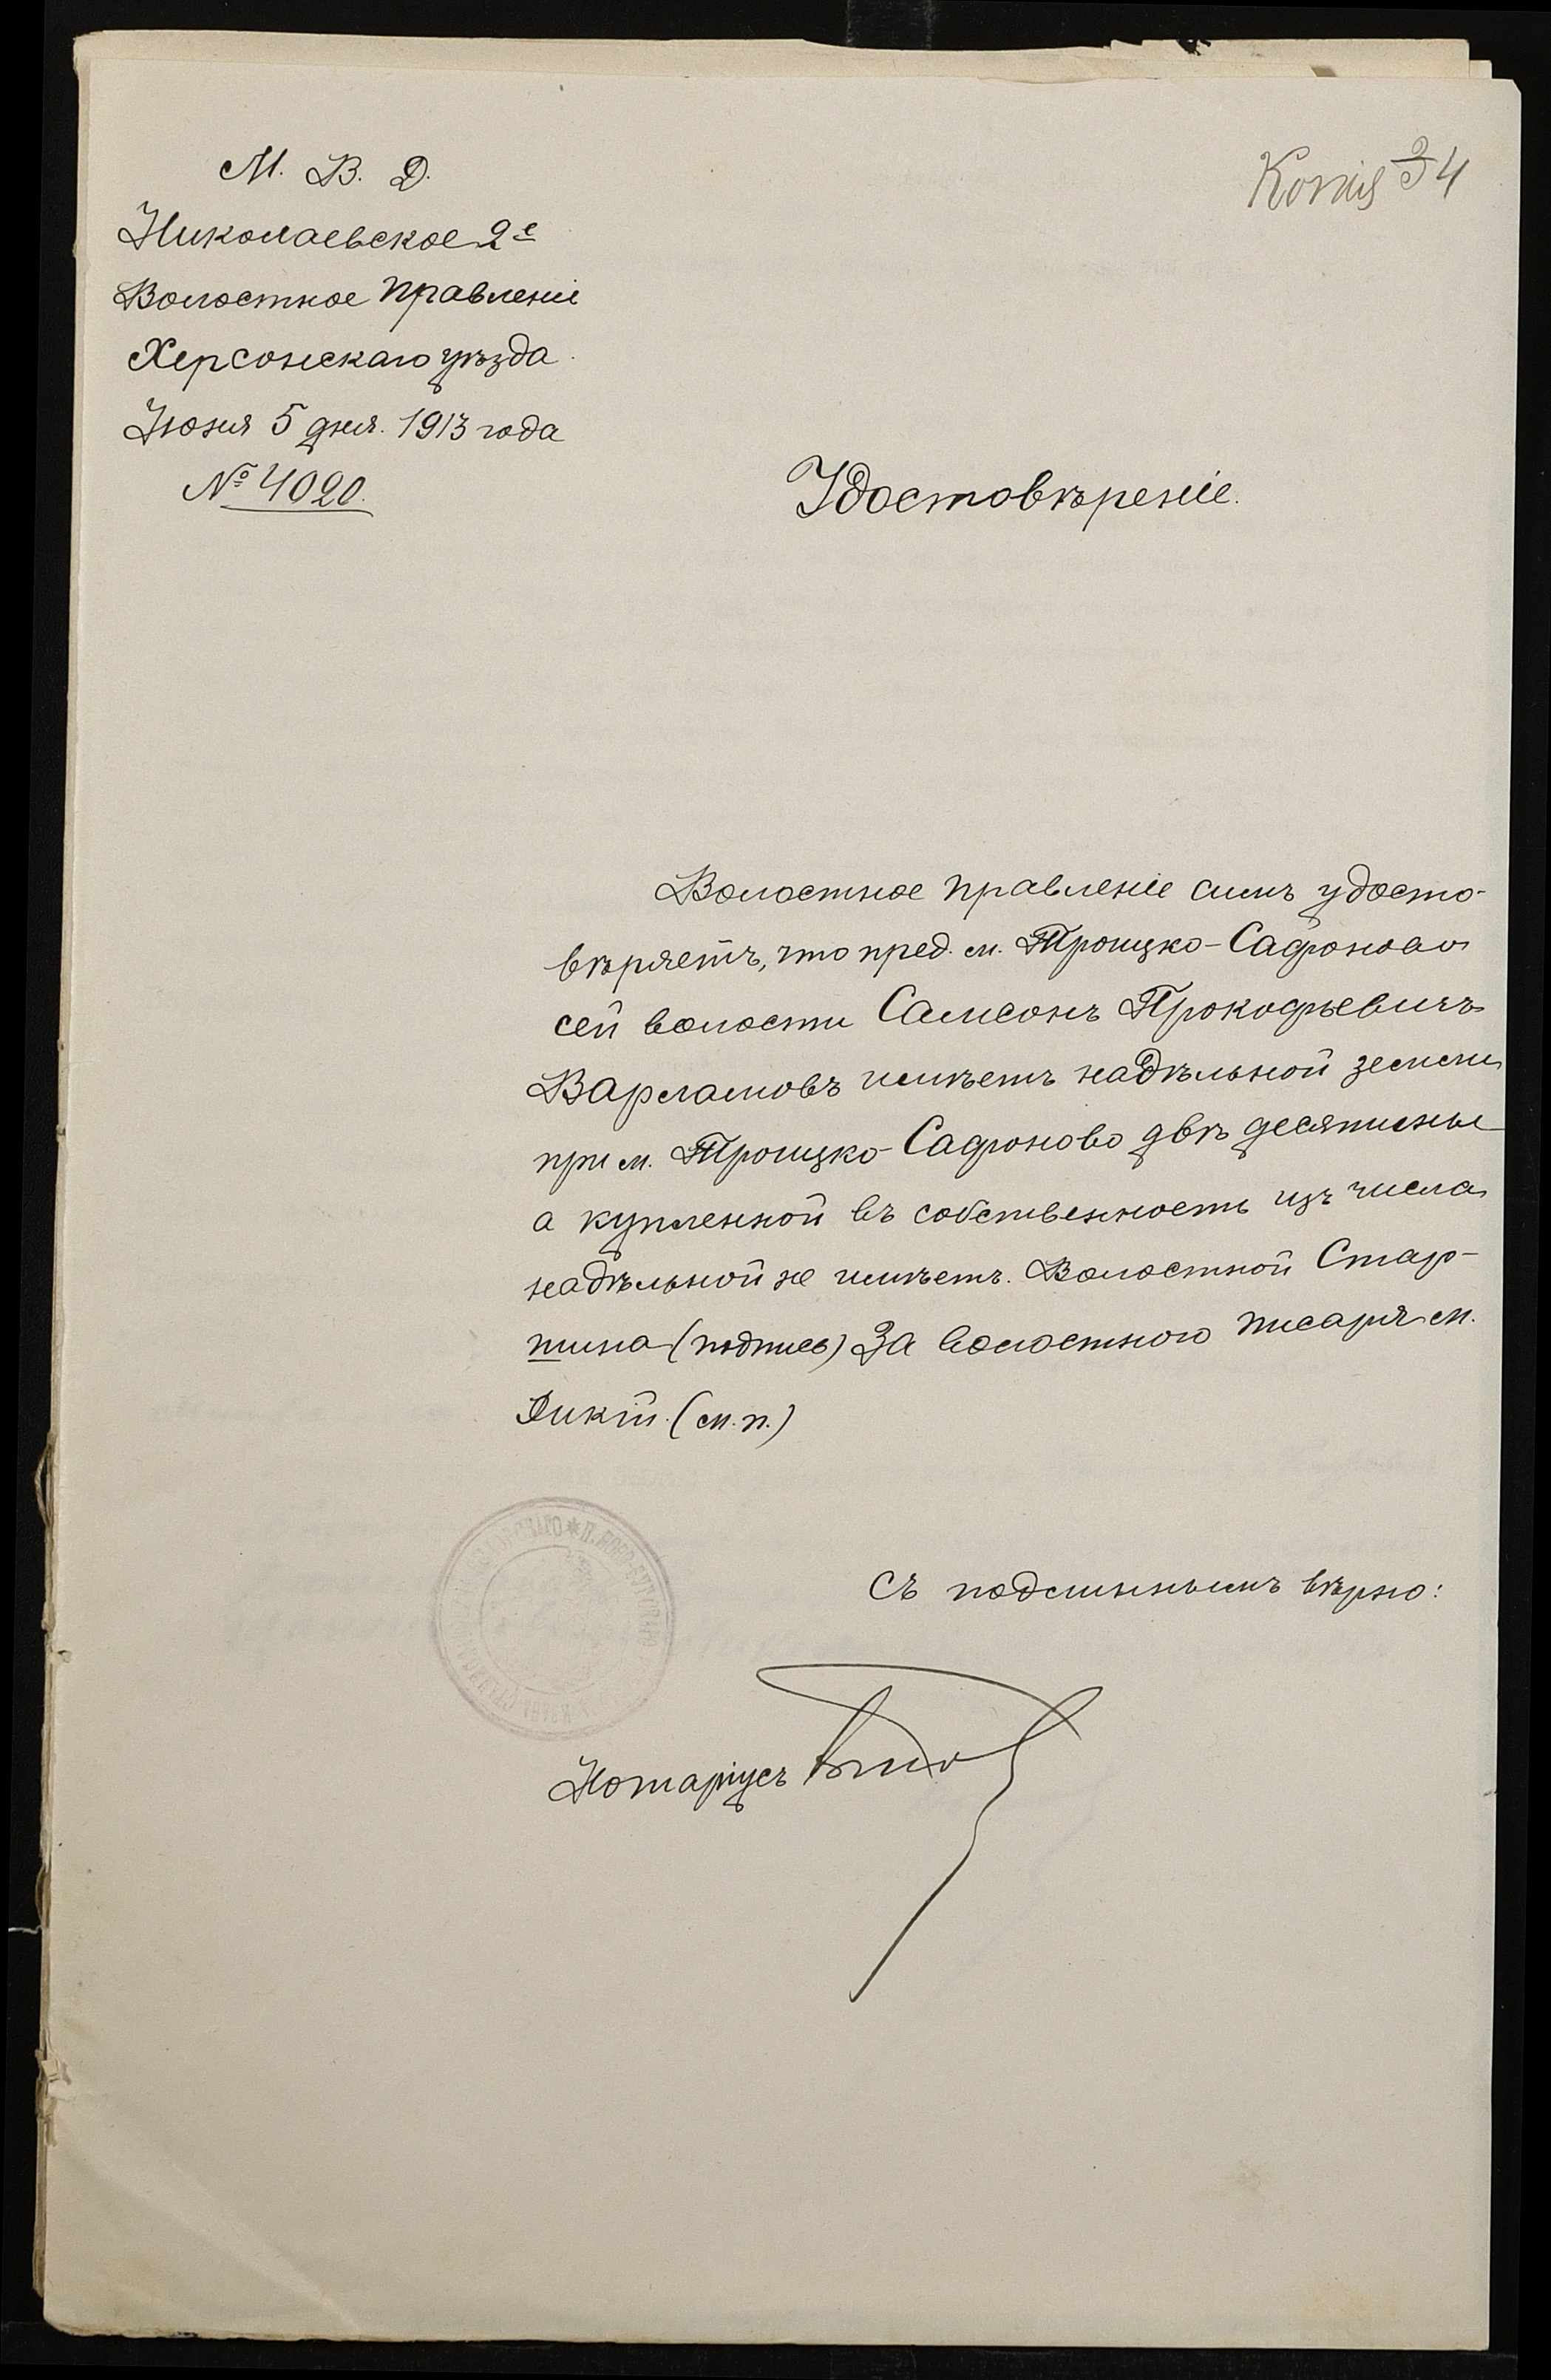 М. В. Д.
Николаевское 2е
Волостное Правленіе
Херсонскаго уѣзда
Іюня 5 дня. 1913 года
№ 4020.
Копія 34
Удостовѣреніе.
Волостное Правленіе симъ удосто-
вѣряетъ, что пред. м. Троицко-Сафонова
сей волости Самсонъ Прокофьевичъ
Варламовъ имѣетъ надѣльной земли
при м. Троицко-Сафоново двѣ десятины
а купленной въ собственность изъ числа
надѣльной не имѣетъ. Волостной Стар-
шина (подпись) За волостного писаря м.
Дикій. (м.п.)
Съ подлиннымъ вѣрно:
Нотаріусъ